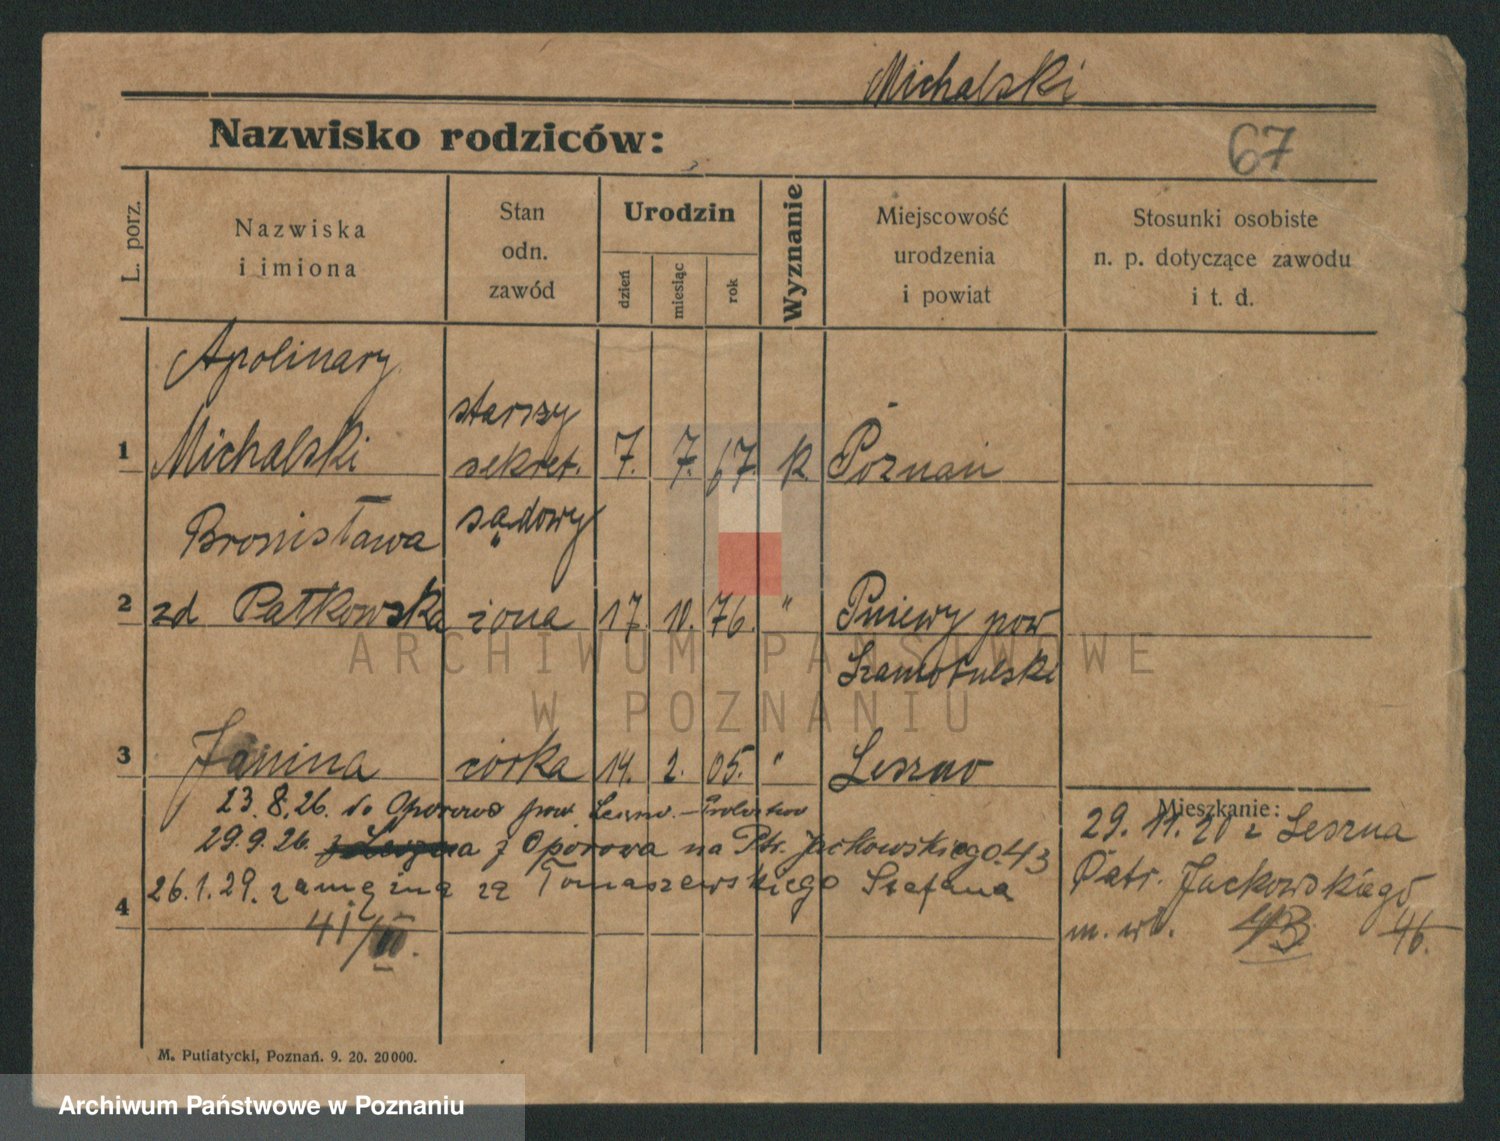 Michalski
Nazwisko rodziców:
67
L. porz.
Nazwiska
i imiona
Stan
odn.
zawód
Urodzin
dzień
miesiąc
rok
Wyznanie
Miejscowość
urodzenia
i powiat
Stosunki osobiste
n. p. dotyczące zawodu
i t. d.
Apolinary
starszy
1 Michalski sekret. 7. 7. 67. k. Poznań
Bronisława sądowy
2 zd Patkowska żona 17. 10. 76. " Pniewy pow
Szamotulski
ARCHIWUM PAŃSTWOWE
W POZNANIU
3 Janina córka 14. 2. 05. " Leszno
23.8.26. do Oporowo pow. Leszno.
Mieszkanie:
29.9.26. z Oporowa na Ptr. Jackowskiego 43
29. 11. 20 z Leszna
26.1.29. zamężna za Tomaszewskiego Stefana
Patr. Jackowskiego
4
41/III.
m. wł. 43 46.
M. Putiatycki, Poznań. 9. 20. 20000.
Archiwum Państwowe w Poznaniu